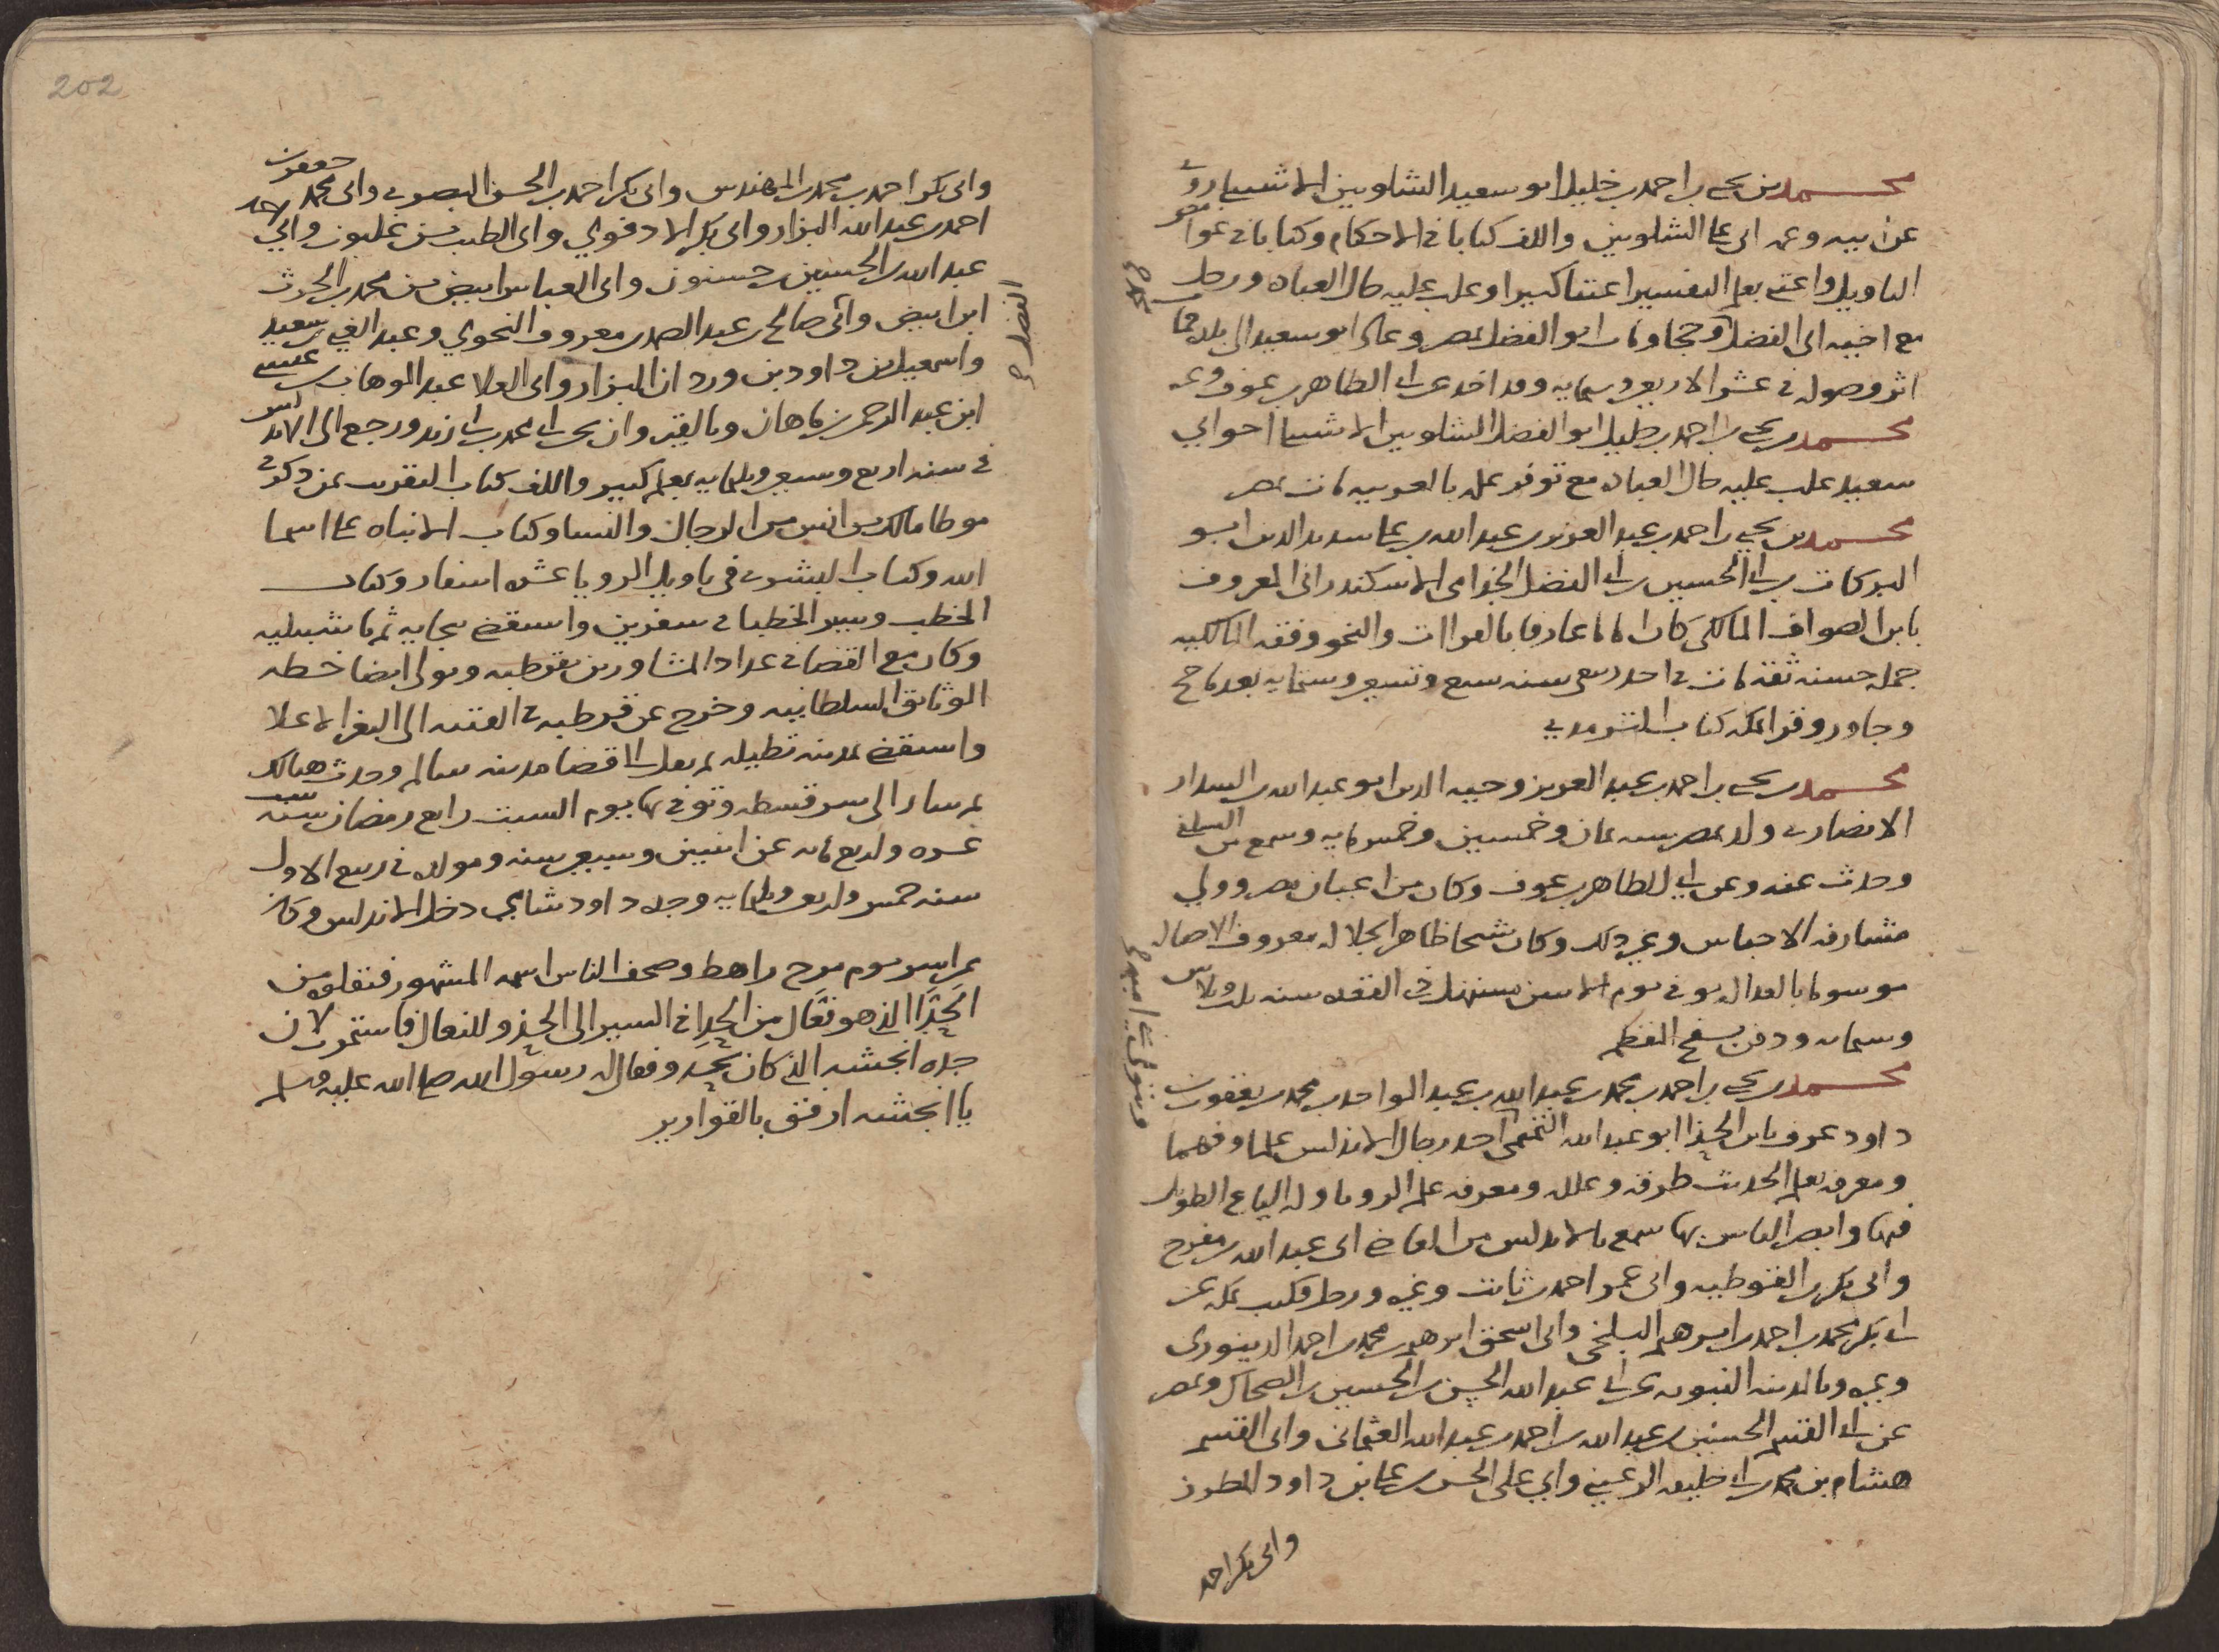 محمد بن يحيى بن احمد بن خليل ابو سعيد الشلوبين الاشبيلي روى
عن ابيه وعمه ابى على الشلوبين والف كتابا فى الاحكام وكتابا فى غوامض
التاويل واعتنى بعلم التفسير اعتنا كبيرا وغلب عليه حال العباده ورحل
مع اخيه ابى الفضل وحجا ومات ابو الفضل بمصر وعاد ابو سعيد الى بلده فمات
اثر وصوله فى عشر الاربعين وستمايه وقد اخذ عن ابى الطاهر بن عوف وغيره
محمد بن يحيى بن احمد بن خليل ابو الفضل الشلوبين الاشبيلي اخو ابي
سعيد غلب عليه حال العباده مع توفر علمه بالعربيه مات بمصر
محمد بن يحيى بن احمد بن عبد العزيز بن عبد الله بن على سديد الدين ابو
البركات بن ابى الحسين بن ابى الفضل الجذامى الاسكندرانى المعروف
بابن الصواف المالكى كان اماما عارفا بالقراات والنحو وفقه المالكيه
جمله حسنه ثقه مات فى احد ربيعى سنه سبع وتسعين وستمايه بعد ما حج
وجاور وقرا بمكه كتاب الترمدي
محمد بن يحيى بن احمد بن عبد العزيز وجيه الدين ابو عبد الله بن السدار
الانصارى ولد بمصر سنه ثمان وخمسين وخمس مايه وسمع من السلفى
وحدث عنه وعن ابى الطاهر بن عوف وكان من اعيان مصر وولي
مشارفه الاحباس وغير ذلك وكان شيخا ظاهر الجلاله معروف الاصاله
موسوما بالعداله توفى يوم الاثنين مستهل ذى القعده سنه ثلاث وثلاثين
وستمايه ودفن بسفح المقطم
محمد بن يحيى بن احمد بن محمد بن عبد الله بن عبد الواحد بن محمد بن يعقوب بن
داود عرف بابن الحذا ابو عبد الله التميمى احد رجال الاندلس علما وفهما
ومعرفه بعلم الحديث طرقه وعلله ومعرفه علم الرويا وله الباع الطويل
فيها وابصر الناس بها سمع بالاندلس من القاضى ابى عبد الله بن مفرج
وابى بكر بن القوطيه وابى عمر احمد بن ثابت وغيره ورحل فكتب بمكه عن
ابى بكر محمد بن احمد بن ابرهيم البلخى وابى اسحق ابرهيم بن محمد بن احمد الدينورى
وغيره وبالمدينه النبويه عن ابى عبد الله الحسن بن الحسين بن الضحاك وبمصر
عن ابى القسم الحسين بن عبد الله بن احمد بن عبد الله العثمانى وابى القسم
هشام بن محمد بن ابى خليفه الرعيني وابي على الحسن بن على بن داود المطرز
وابى بكر احمد
202
وابى بكر احمد بن محمد بن المهندس وابى بكر احمد بن الحسن البصرى وابى محمد جعفر بن
احمد بن عبد الله البزار وابى بكر الادفوي وابى الطيب بن غلبون وابي
عبد الله بن الحسين بن حسنون وابى العباس ابيض بن محمد بن الحرث
ابن ابيض وابى صالح بن عبد الصمد بن معروف النحوي وعبد الغنى بن سعيد
واسمعيل بن داود بن وردان البزار وابى العلا عبد الوهاب بن عيسى
ابن عبد الرحمن بن ماهان وبالقيروان عن ابى محمد بن ابى زيد ورجع الى الاندلس
فى سنه اربع وسبعين وثلثمايه بعلم كبير والف كتاب التقريب بمن ذكر فى
موطا مالك بن انس من الرجال والنسا وكتاب الانباه على اسما
الله وكتاب البشرى فى تاويل الرويا عشره اسفار وكتاب
الخطب وسير الخطبا فى سفرين واستقضى ببجايه ثم باشبيليه
وكان مع القضا فى عداد المشاورين بقرطبه وتولى ايضا خطه
الوثايق السلطانيه وخرج عن قرطبه فى الفتنه الى الثغر الاعلا
واستقضى بمدينه تطيله ثم نقل الى قضا مدينه سالم وحدث هنالك
ثم سار الى سرقسطه وتوفى بها يوم السبت رابع رمضان سنه ست
عشره واربع مايه عن اثنين وسبعين سنه ومولده فى ربيع الاول
سنه خمس واربعين وثلثمايه وجده داود شامي دخل الاندلس وكان
المشهور فنقلوه من
الحذا الذى هو نعال من الحذا فى السير الى الحذو للنعال فاستمرت لان
جده انجشه الذى كان يحدو فقال له رسول الله صلى الله عليه وسلم
يا انجشه ارفق بالقوارير